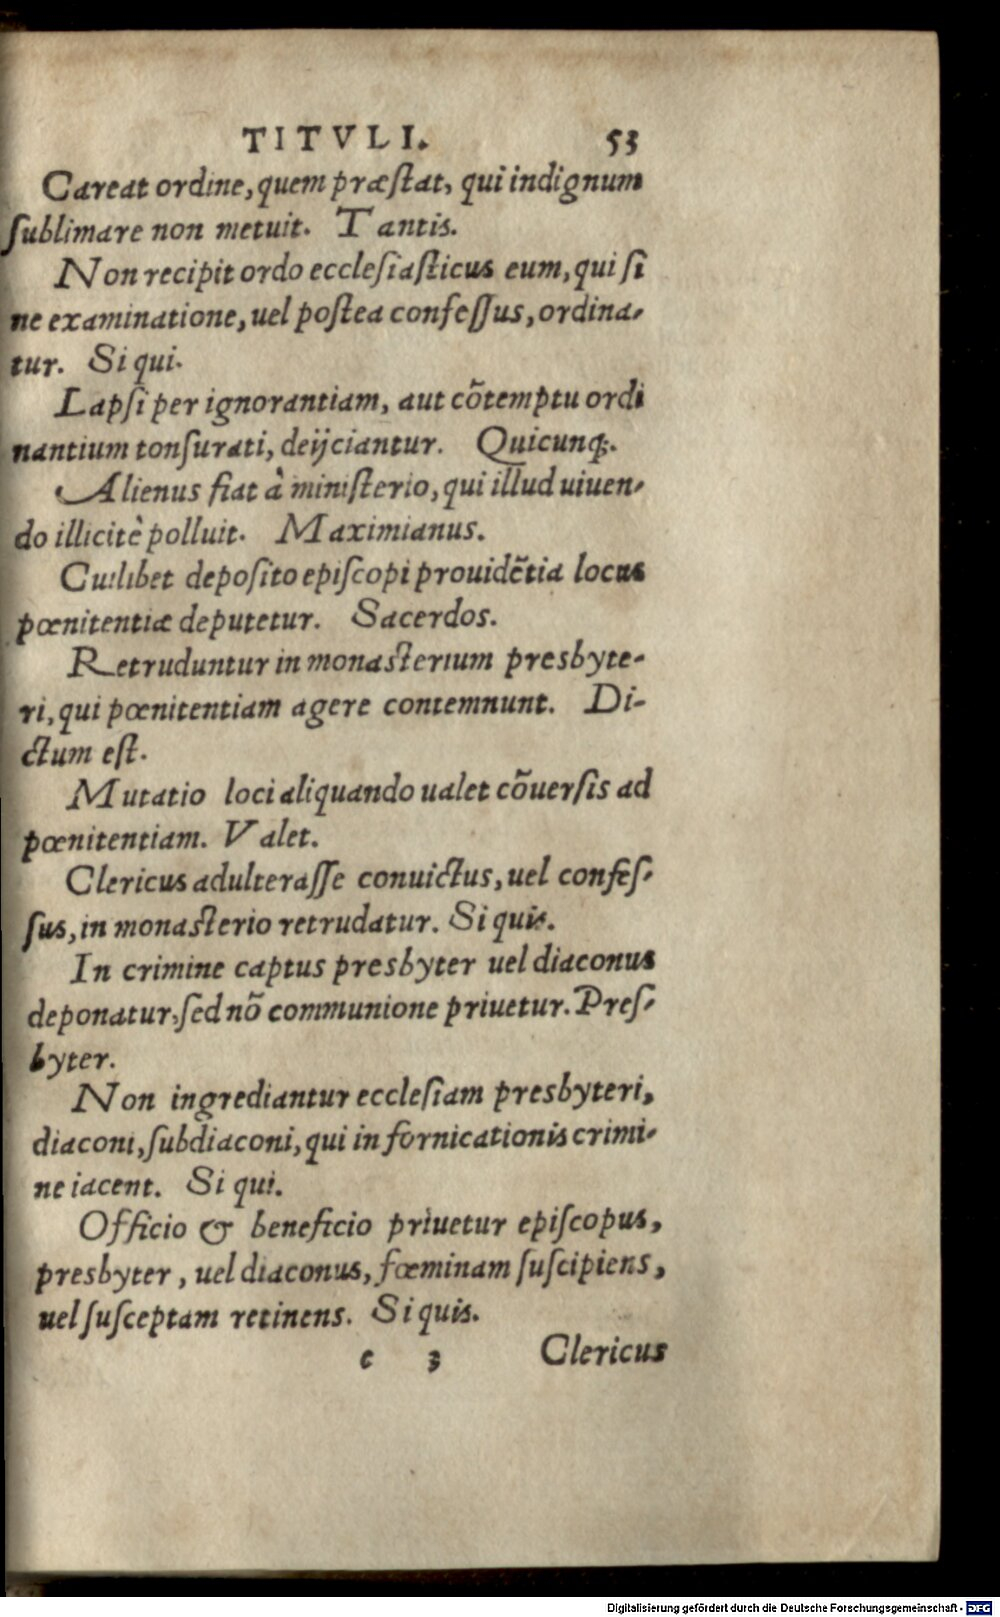 TITVLI. 53
Careat ordine, quem præstat, qui indignum
sublimare non metuit. Tantis.
Non recipit ordo ecclesiasticus eum, qui si
ne examinatione, uel postea confessus, ordina-
tur. Si qui.
Lapsi per ignorantiam, aut cõtemptu ordi
nantium tonsurati, deijciantur. Quicunq;.
Alienus fiat à ministerio, qui illud uiuen-
do illicitè polluit. Maximianus.
Cuilibet deposito episcopi prouidẽtia locus
pœnitentiæ deputetur. Sacerdos.
Retruduntur in monasterium presbyte-
ri, qui pœnitentiam agere contemnunt. Di-
ctum est.
Mutatio loci aliquando ualet cõuersis ad
pœnitentiam. Valet.
Clericus adulterasse conuictus, uel confes-
sus, in monasterio retrudatur. Si quis.
In crimine captus presbyter uel diaconus
deponatur, sed nõ communione priuetur. Pres-
byter.
Non ingrediantur ecclesiam presbyteri,
diaconi, subdiaconi, qui in fornicationis crimi-
ne iacent. Si qui.
Officio & beneficio priuetur episcopus,
presbyter, uel diaconus, fœminam suscipiens,
uel susceptam retinens. Si quis.
c 3 Clericus
Digitalisierung gefördert durch die Deutsche Forschungsgemeinschaft - DFG